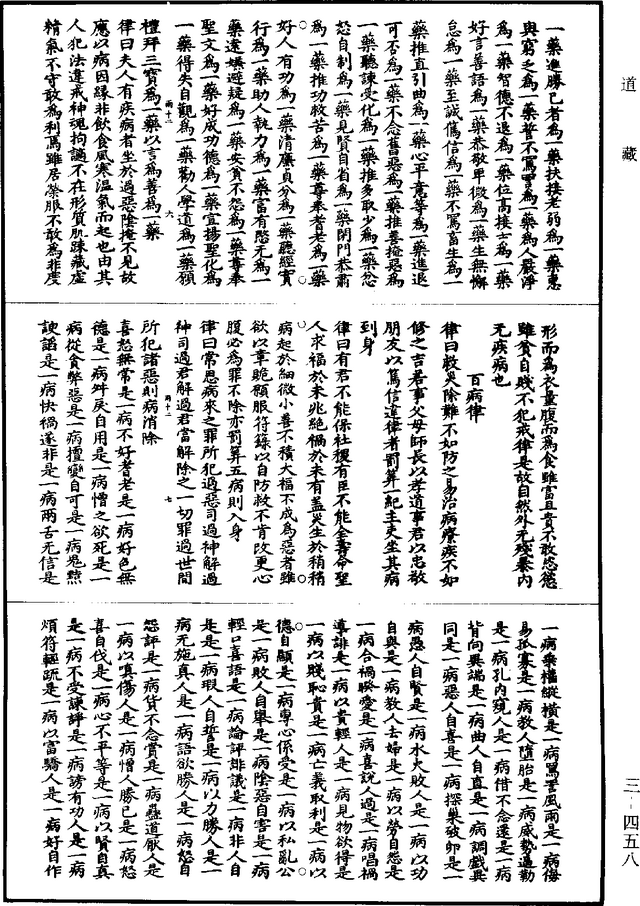 道藏
一藥進勝己者為一藥扶接老弱為一藥惠
與窮乏為一藥誓不罵詈為一藥為人嚴淨
為一藥智德不退為一藥位高接士為一藥
好言善語為一藥恭敬卑微為一藥生無懈
怠為一藥至誠篤信為一藥不罵畜生為一
藥推直引曲為一藥心平意等為一藥進退
可否為一藥不念舊惡為一藥推善掩惡為
一藥聽諫受化為一藥推多取少為一藥忿
怒自制為一藥見賢自省為一藥閉門恭肅
為一藥推功救苦為一藥尊奉耆老為一藥
好人有功為一藥清廉貞分為一藥聽經實
行為一藥助人執力為一藥富有愍无為一
藥遠嫌避疑為一藥安貧不怨為一藥尊奉
聖文為一藥好成功德為一藥宣揚聖化為
一藥得失自觀為一藥勸人學道為一藥願
禮拜三寶為一藥以言為善為一藥
律曰夫人有疾病者坐於過惡陰掩不見故
應以病因緣非飲食風寒溫氣而起也由其
人犯法違戒神魂拘謫不在形質肌踈藏虛
精氣不守敢為利焉雖居榮服不敢為非度
形而為衣量腹而為食雖富且貴不敢恣慾
雖貧自賤不犯戒律是故自然外无殘暴內
无疾病也
百病律
律曰救災除難不如防之易治病療疾不如
修之吉君事父母師長以孝道事君以忠敬
朋友以篤信違律者罰筭一紀主吏坐其病
到身
律曰有君不能保社稷有臣不能全壽命聖
人求福於未兆絕禍於未有蓋災生於稍稍
病起於細微小善不積大福不成為惡者雖
欲以章詭願服符籙以自防救不肯改更心
腹必為罪不除亦罰筭五病則入身
律曰常思病來之罪所犯過惡司過神解過
神司過君解過君當解除之一切罪過世間
所犯諸惡則病消除
喜怒無常是一病不好耆老是一病好色無
德是一病舛戾自用是一病憎之欲死是一
病從貪弊惡是一病擅變自可是一病鬼黠
諛諂是一病快禍遂非是一病兩舌无信是
一病乘權縱橫是一病罵詈風雨是一病侮
易孤寡是一病教人墮胎是一病威勢逼勒
是一病孔內窺人是一病借不念還是一病
背向異端是一病曲人自直是一病調戲異
同是一病惡人自喜是一病探巢破卵是一
病愚人自賢是一病水火敗人是一病以功
自與是一病教人去婦是一病以勞自怨是
一病合禍睽愛是一病喜說人過是一病唱禍
導誹是一病以貴輕人是一病見物欲得是
一病以賤恥貴是一病亡義取利是一病以
德自顯是一病專心係受是一病以私亂公
是一病敗人自舉是一病陰惡自害是一病
輕口喜語是一病論評誹議是一病非人自
是是一病瑕人自誓是一病以力勝人是一
病无施真人是一病語欲勝人是一病怒自
怨評是一病貸不念賞是一病蠱道厭人是
一病以真傷人是一病憎人勝己是一病怒
喜自伐是一病心不平等是一病以賢自真
是一病不受諫評是一病謗有功人是一病
煩苛輕疏是一病以富驕人是一病好自作
三-四五八